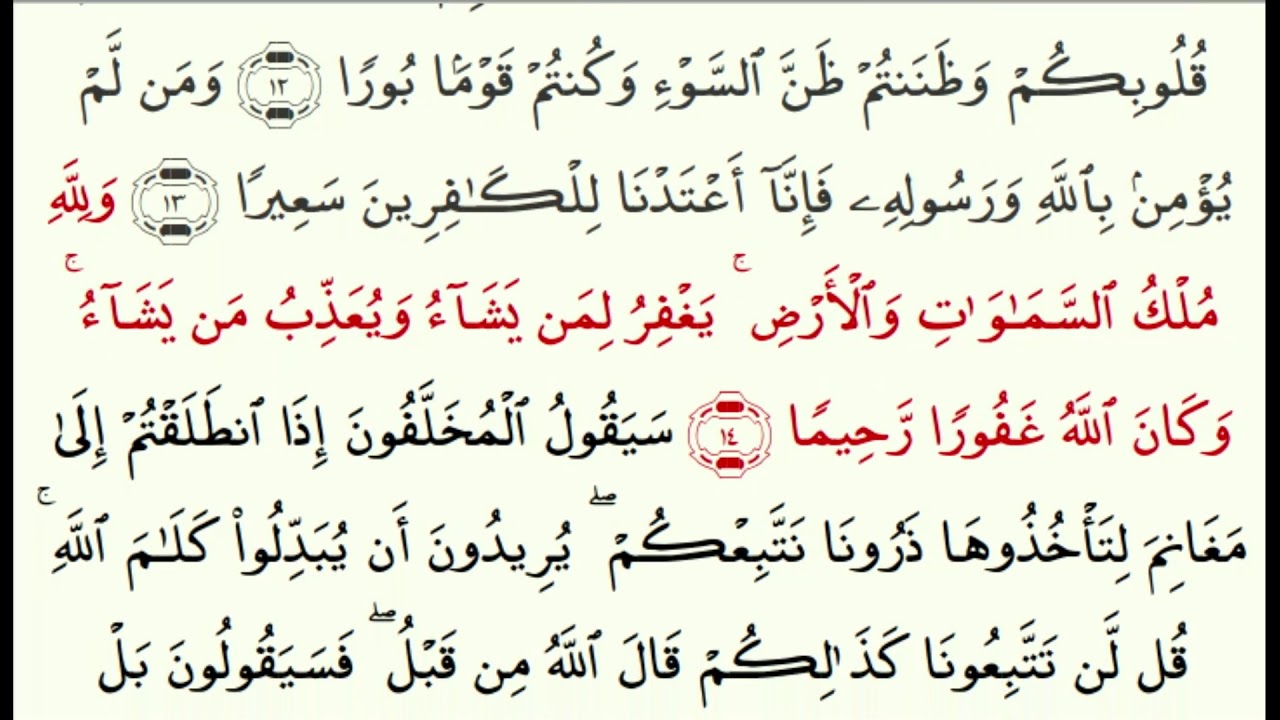 قُلُوبِكُمْ وَظَنَنتُمْ ظَنَّ ٱلسَّوْءِ وَكُنتُمْ قَوْمًۢا بُورًا ١٢ وَمَن لَّمْ
يُؤْمِنۢ بِٱللَّهِ وَرَسُولِهِۦ فَإِنَّآ أَعْتَدْنَا لِلْكَـٰفِرِينَ سَعِيرًا ١٣ وَلِلَّهِ
مُلْكُ ٱلسَّمَـٰوَٰتِ وَٱلْأَرْضِ ۚ يَغْفِرُ لِمَن يَشَآءُ وَيُعَذِّبُ مَن يَشَآءُ ۚ
وَكَانَ ٱللَّهُ غَفُورًا رَّحِيمًا ١٤ سَيَقُولُ ٱلْمُخَلَّفُونَ إِذَا ٱنطَلَقْتُمْ إِلَىٰ
مَغَانِمَ لِتَأْخُذُوهَا ذَرُونَا نَتَّبِعْكُمْ ۖ يُرِيدُونَ أَن يُبَدِّلُوا۟ كَلَـٰمَ ٱللَّهِ ۚ
قُل لَّن تَتَّبِعُونَا كَذَٰلِكُمْ قَالَ ٱللَّهُ مِن قَبْلُ ۖ فَسَيَقُولُونَ بَلْ